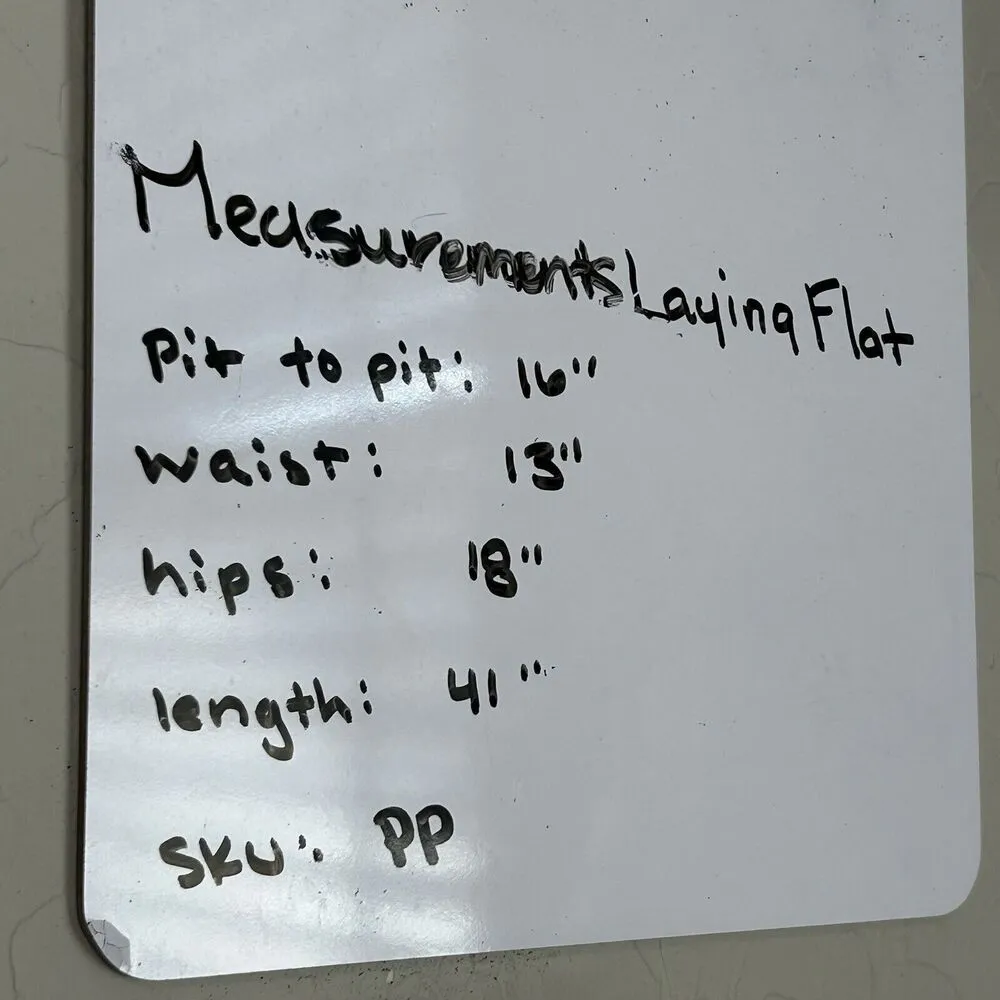 Measurements Laying Flat
Pit to pit: 16"
waist: 13"
hips: 18"
length: 41"
SKU: PP